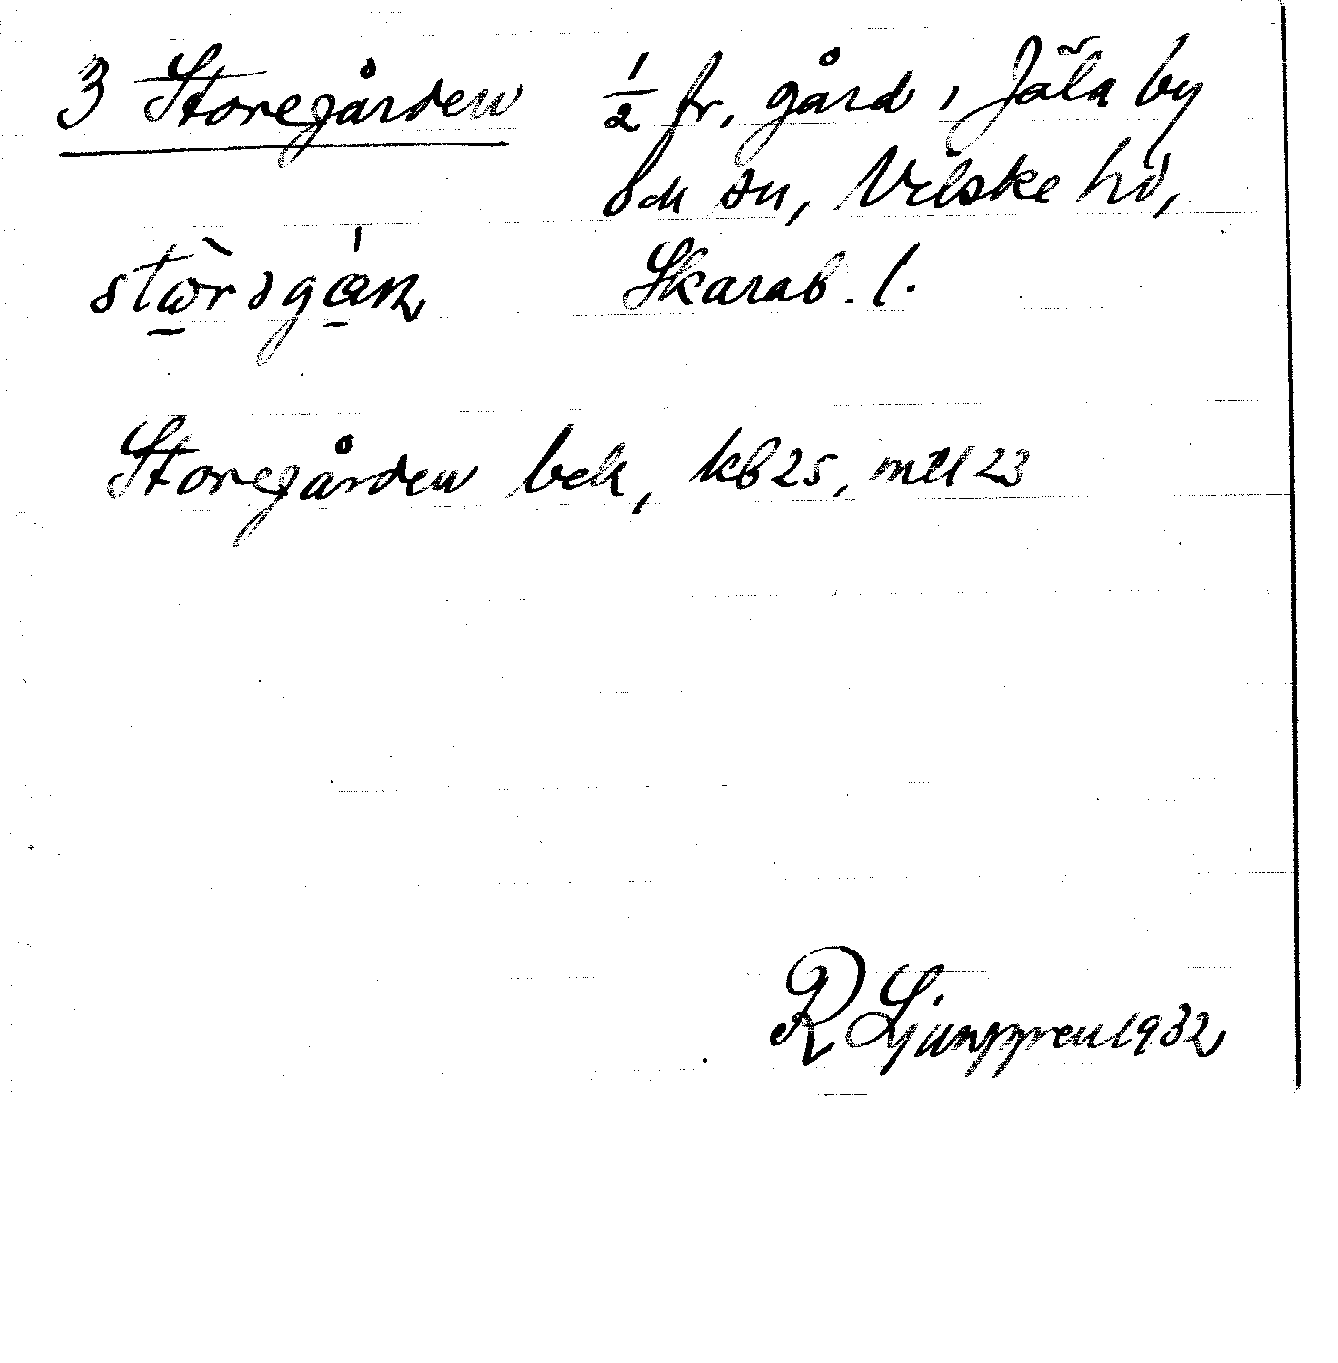 3 Storegården ½ fr. gård i Jäla by
och sn, Vilske hd,
Skarab. l.
Storegården bek, kb 25, mtl 23
R Ljunggren 1932